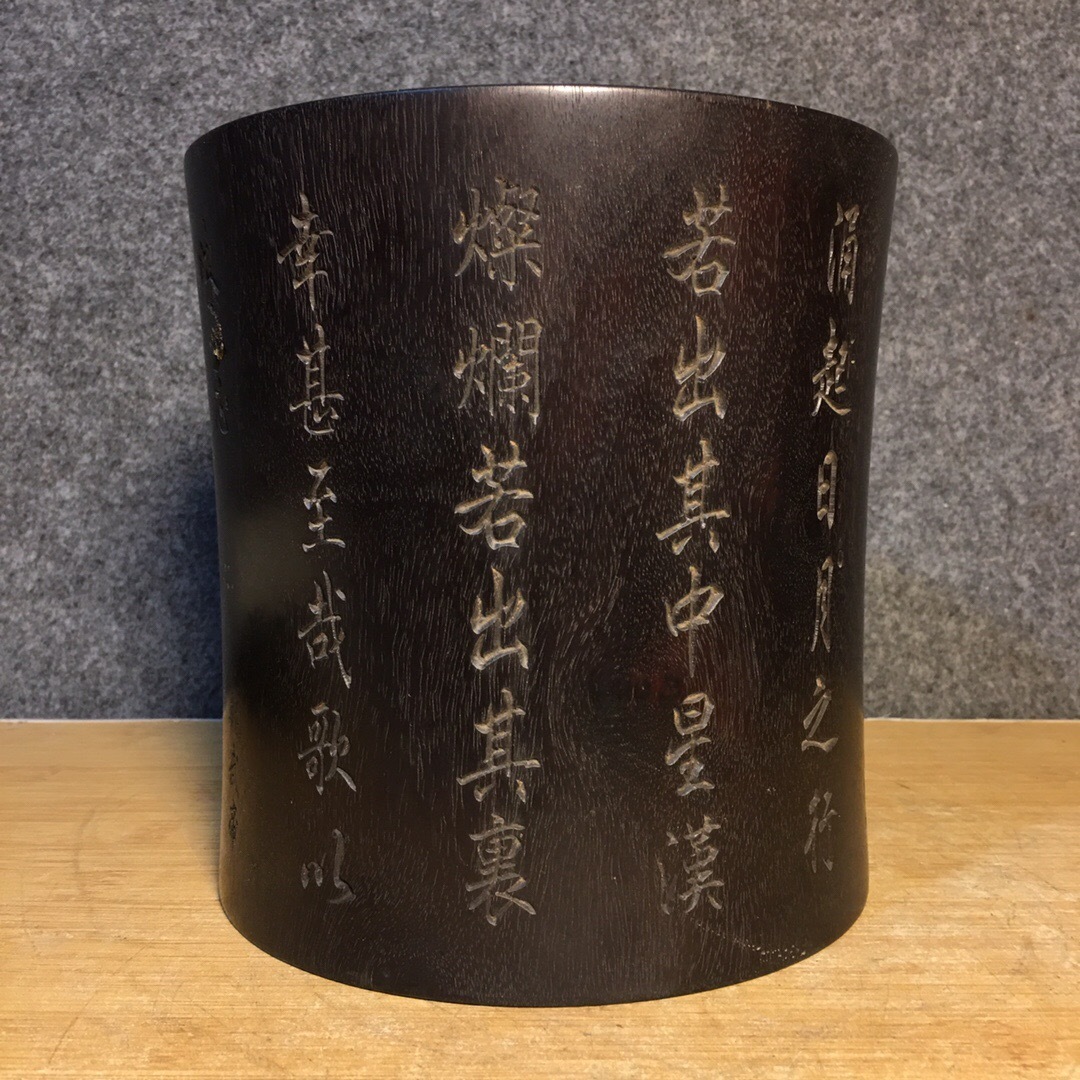 涌起日月之行
若出其中星漢
燦爛若出其裏
幸甚至哉歌以